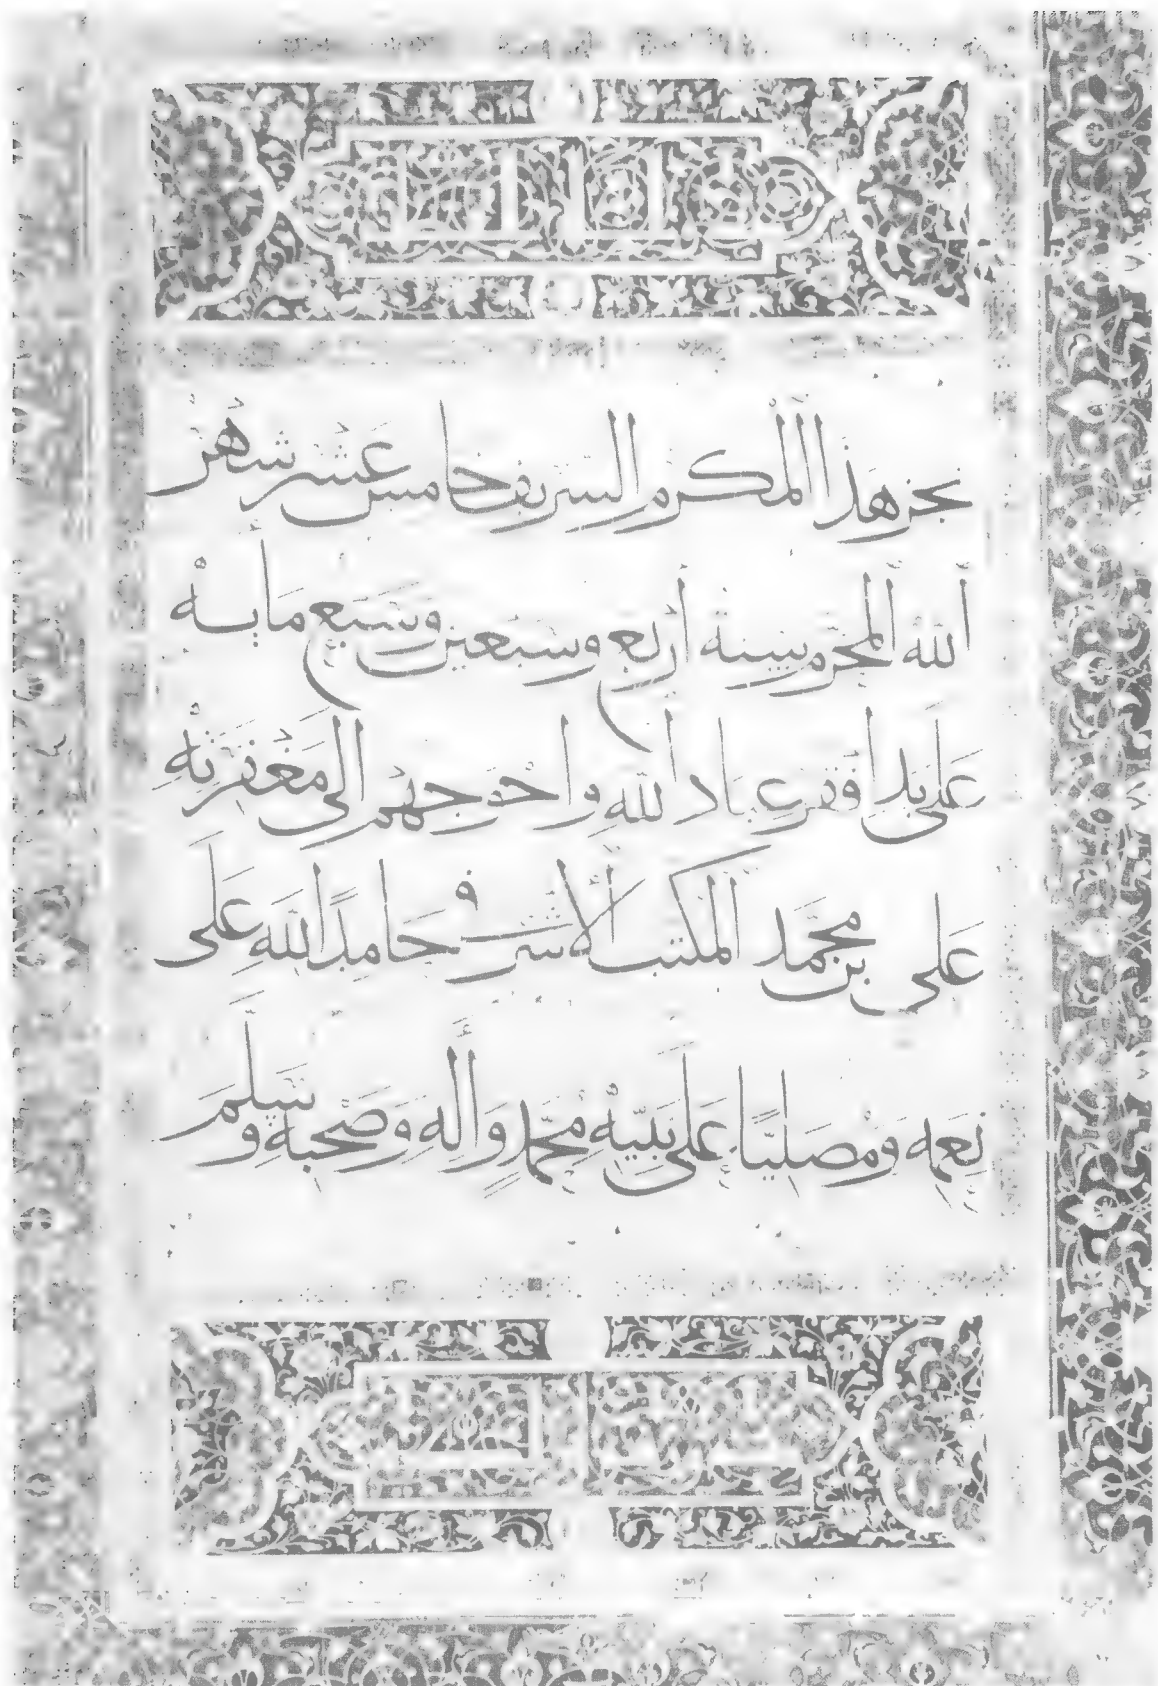 نجز هذا المكرم الشريف خامس عشر شهر
ألله المحرّم سنة أربع وسبعين وسبع مايه
على يد افقر عباد الله واحوجهم الى مغفرته
على بن محمّد المكتب الأشرفى حامدًا لله على
نعمه ومصليًا على نبيّه محمّدٍ وأله وصحبه وسلّم